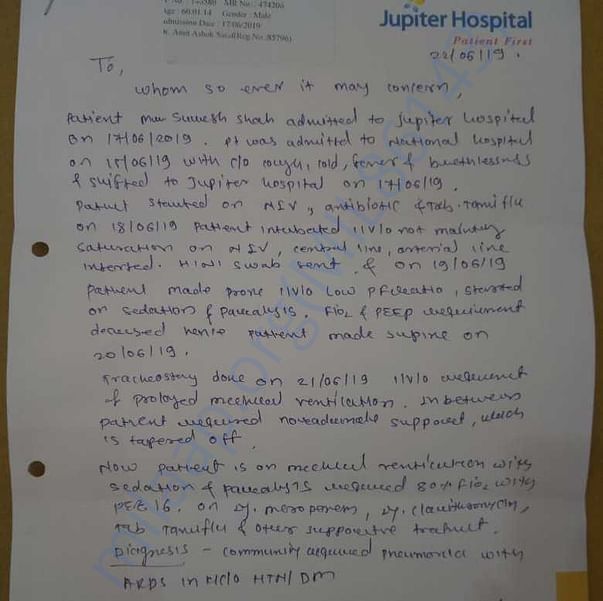 MR No.: 474206
Age : 60.01.14 Gender : Male
Admission Date : 17/06/2019
Jupiter Hospital
Patient First
22/06/19.
To,
whom so ever it may concern,
Patient Mr Suresh shah admitted to Jupiter hospital
on 17/06/2019. Pt was admitted to National hospital
on 15/06/19 with c/o cough, cold, fever & breathlessness
& shifted to Jupiter hospital on 17/06/19.
Patient started on NIV, antibiotic & Tab. Tamiflu
on 18/06/19 Patient intubated i/v/o not
saturation on NIV, central line, arterial line
inserted. H1N1 swab sent & on 19/06/19
patient made prone i/v/o low PF ratio, started
on sedation & paralysis. FiO2 & PEEP requirement
decreased hence patient made supine on
20/06/19.
Tracheostomy done on 21/06/19 i/v/o
of mechanical ventilation. Inbetween
patient required noradrenaline support, which
is tapered off.
Now patient is on mechanical ventilation with
sedation & paralysis required 80% FiO2 with
PEEP 16. on meropenem, clarithromycin,
Tab Tamiflu & other supportive
Diagnosis - community acquired pneumonia with
ARDS in K/c/o HTN/DM